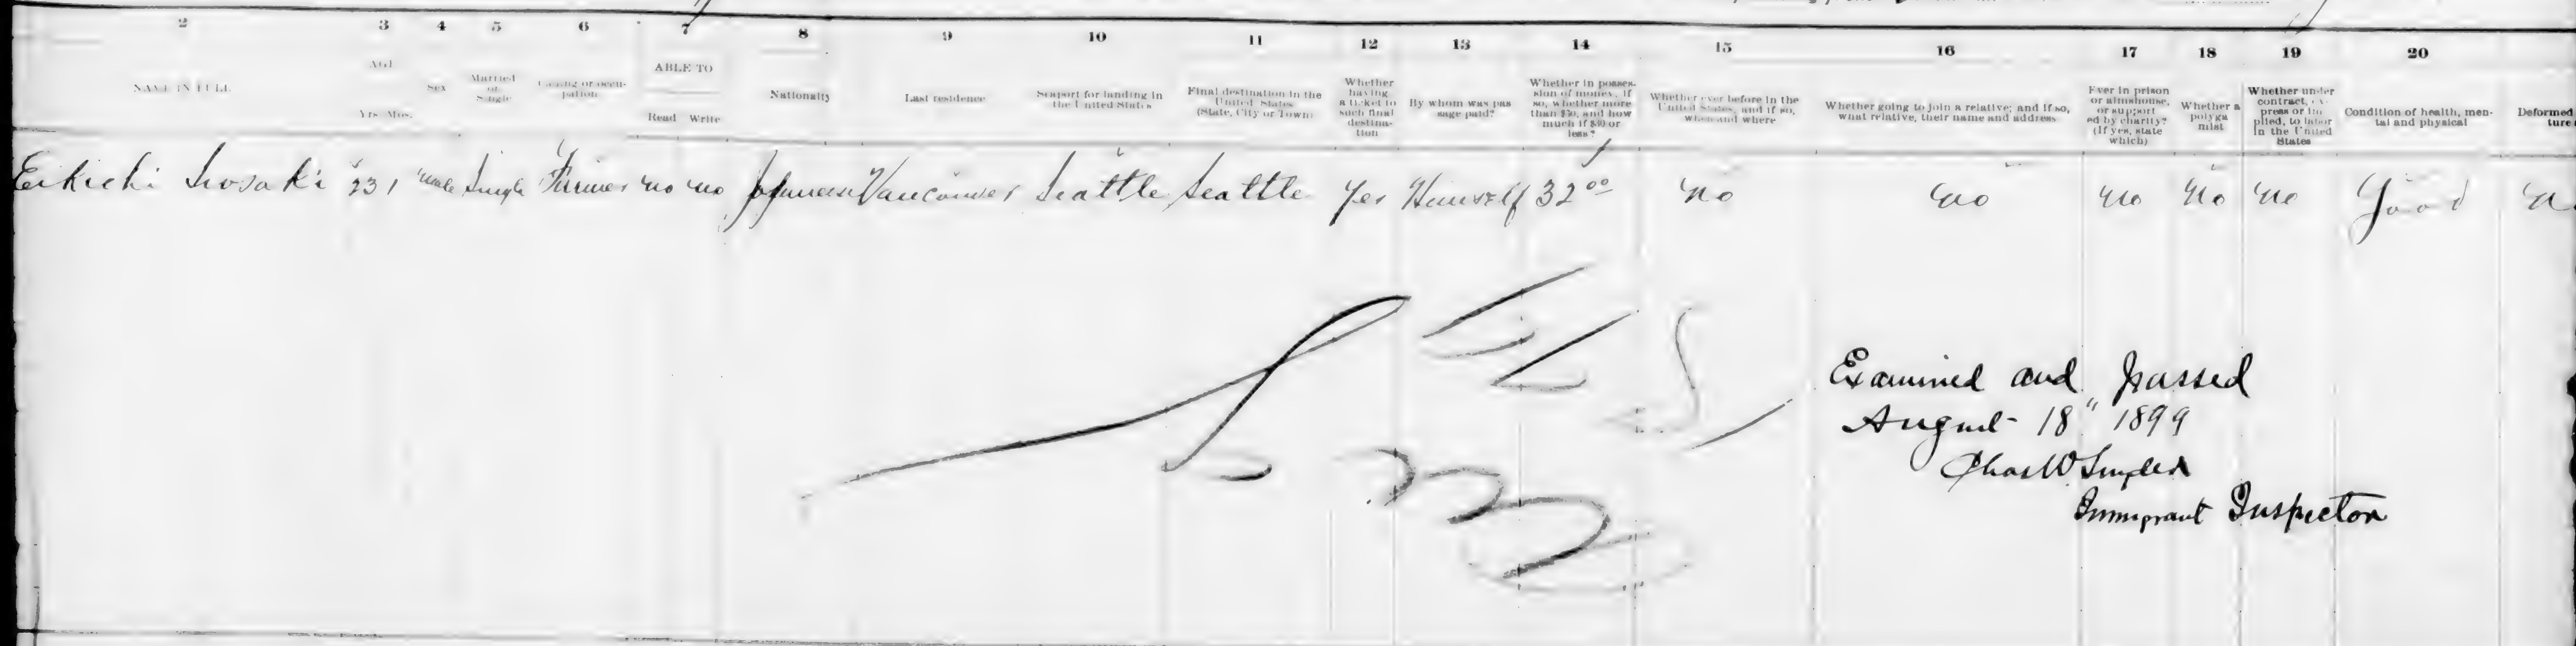 2 3 4 5 6 7 8 9 10 11 12 13 14 15 16 17 18 19 20
NAME IN FULL
AGE
Yrs. Mos.
Sex
Married
or
Single
Calling or occu-
pation
ABLE TO
Read Write
Nationality
Last residence
Seaport for landing in
the United States
Final destination in the
United States
(State, City or Town)
Whether
having
a ticket to
such final
destina-
tion
By whom was pas
sage paid?
Whether in posses-
sion of money, if
so, whether more
than $30, and how
much if $30 or
less?
Whether ever before in the
United States, and if so,
when and where
Whether going to join a relative; and if so,
what relative, their name and address
Ever in prison
or almshouse,
or support
ed by charity?
(If yes, state
which)
Whether a
polyga
mist
Whether under
contract, ex
press or im
plied, to labor
in the United
States
Condition of health, men-
tal and physical
Deformed
ture
Eikichi 23 1 male Single Farmer no no Japanese Vancouver Seattle Seattle Yes Himself 32 00 no no no no no Good
Examined and passed
August 18" 1899
Chas W Snyder
Immigrant Inspector